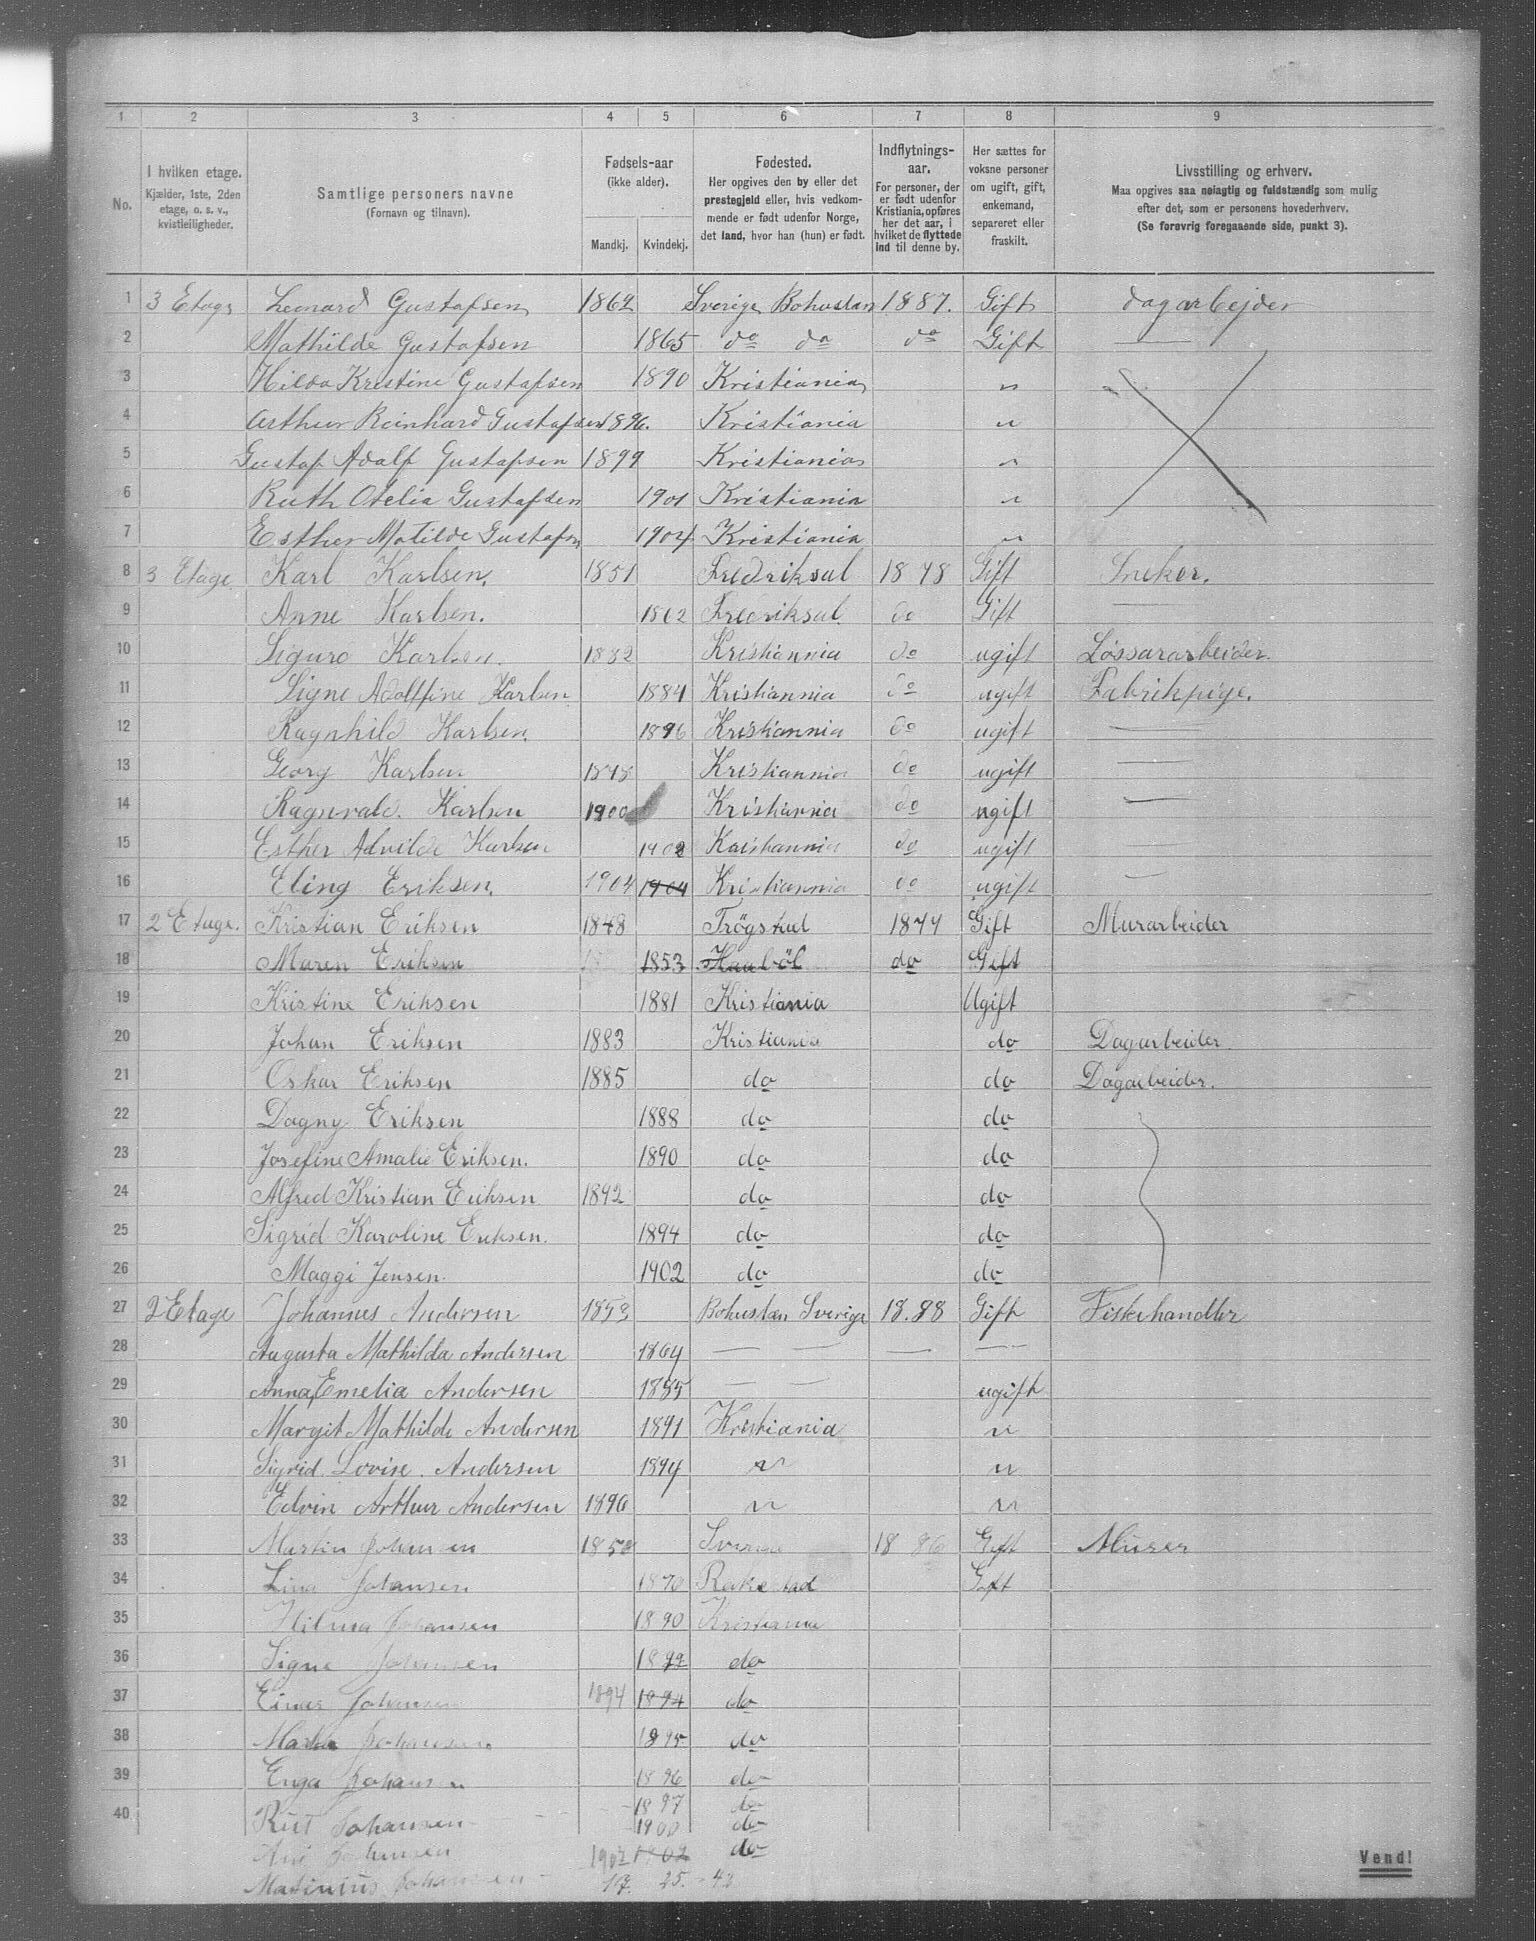 1 2 3 4 5 6 7 8 9
No.
I hvilken etage.
Kjælder, 1ste, 2den
etage, o. s. v.,
kvistleiligheder.
Samtlige personers navne
(Fornavn og tilnavn).
Fødsels-aar
(ikke alder).
Mandkj. Kvindekj.
Fødested.
Her opgives den by eller det
prestegjeld eller, hvis vedkom-
mende er født udenfor Norge,
det land, hvor han (hun) er født.
Indflytnings-
aar.
For personer, der
er født udenfor
Kristiania, opføres
her det aar, i
hvilket de flyttede
ind til denne by.
Her sættes for
voksne personer
om ugift, gift,
enkemand,
separeret eller
fraskilt.
Livsstilling og erhverv.
Maa opgives saa nøiagtig og fuldstændig som mulig
efter det, som er personens hovederhverv.
(Se forøvrig foregaaende side, punkt 3).
1 3 Etage Leonard Gustafsen 1862 Sverige Bohuslan 1887. Gift dagarbejder
2 Mathilde Gustafsen 1865 do do do Gift —
3 Hilda Kristine Gustafsen 1890 Kristiania "
4 Arthur Reinhard Gustafsen 1896. Kristiania "
5 Gustaf Adalf Gustafsen 1899 Kristiania "
6 Ruth Otelia Gustafsen 1901 Kristiania "
7 Esther Matilde Gustafsn 1904 Kristiania "
8 3 Etage Karl Karlsen. 1851 Fredriksal 1878 Gift Sneker.
9 Anne Karlsen. 1862 Fredriksal. do Gift —
10 Sigurd Karlsen. 1882 Kristiannia do ugift Løssararbeider.
11 Signe Adolfine Karlsen 1884 Kristiannia do ugift Fabrikpige.
12 Ragnhild Karlsen. 1896 Kristiannia do ugift —
13 Georg Karlsen Kristiannia do ugift —
14 Ragnvald. Karlsen 1900 Kristiannia do ugift —
15 Esther Advilde Karlsen 1902 Kristiannia do ugift —
16 Eling Eriksen. 1904 1904 Kristiannia do ugift —
17 2 Etage. Kristian Eriksen 1848 Trögstad 1877 Gift Murarbeider
18 Maren Eriksen 1853 Haaböl do Gift
19 Kristine Eriksen 1881 Kristiania Ugift
20 Johan Eriksen 1883 Kristiania do Dagarbeider
21 Oskar Eriksen 1885 do do Dagarbeider.
22 Dagny Eriksen 1888 do do
23 Josefine Amalie Eriksen. 1890 do do
24 Alfred Kristian Eriksen 1892 do do
25 Sigrid Karoline Eriksen. 1894 do do
26 Maggi Jensen. 1902 do do
27 2 Etage Johannes Andersen 1853 Bohuslæn Sverige 18.88 Gift Fiskehandler
28 Augusta Mathilda Andersen 1864 — — — —
29 Anna Emelia Andersen 1885 — — ugift
30 Margit Mathilde Andersen 1891 Kristiania "
31 Sigrid Lovise. Andersen 1894 " "
32 Edvin Arthur Andersen 1896 " "
33 Martin Johansen 1858 Sverige 1886 Gift Murer
34 Lina Johansen 1870 Rakestad Gift
35 Hilma Johansen 1890 Kristiania
36 Signe Johansen 1892 do
37 Einar Johansen 1894 1894 do
38 Johansen 1895 do
39 Enga Johansen 1896 do
1897 do
40 Rut Johansen 1900 do
Johansen 1902 1902 do
Matinius Johansen 17 25. - 42
Vend!